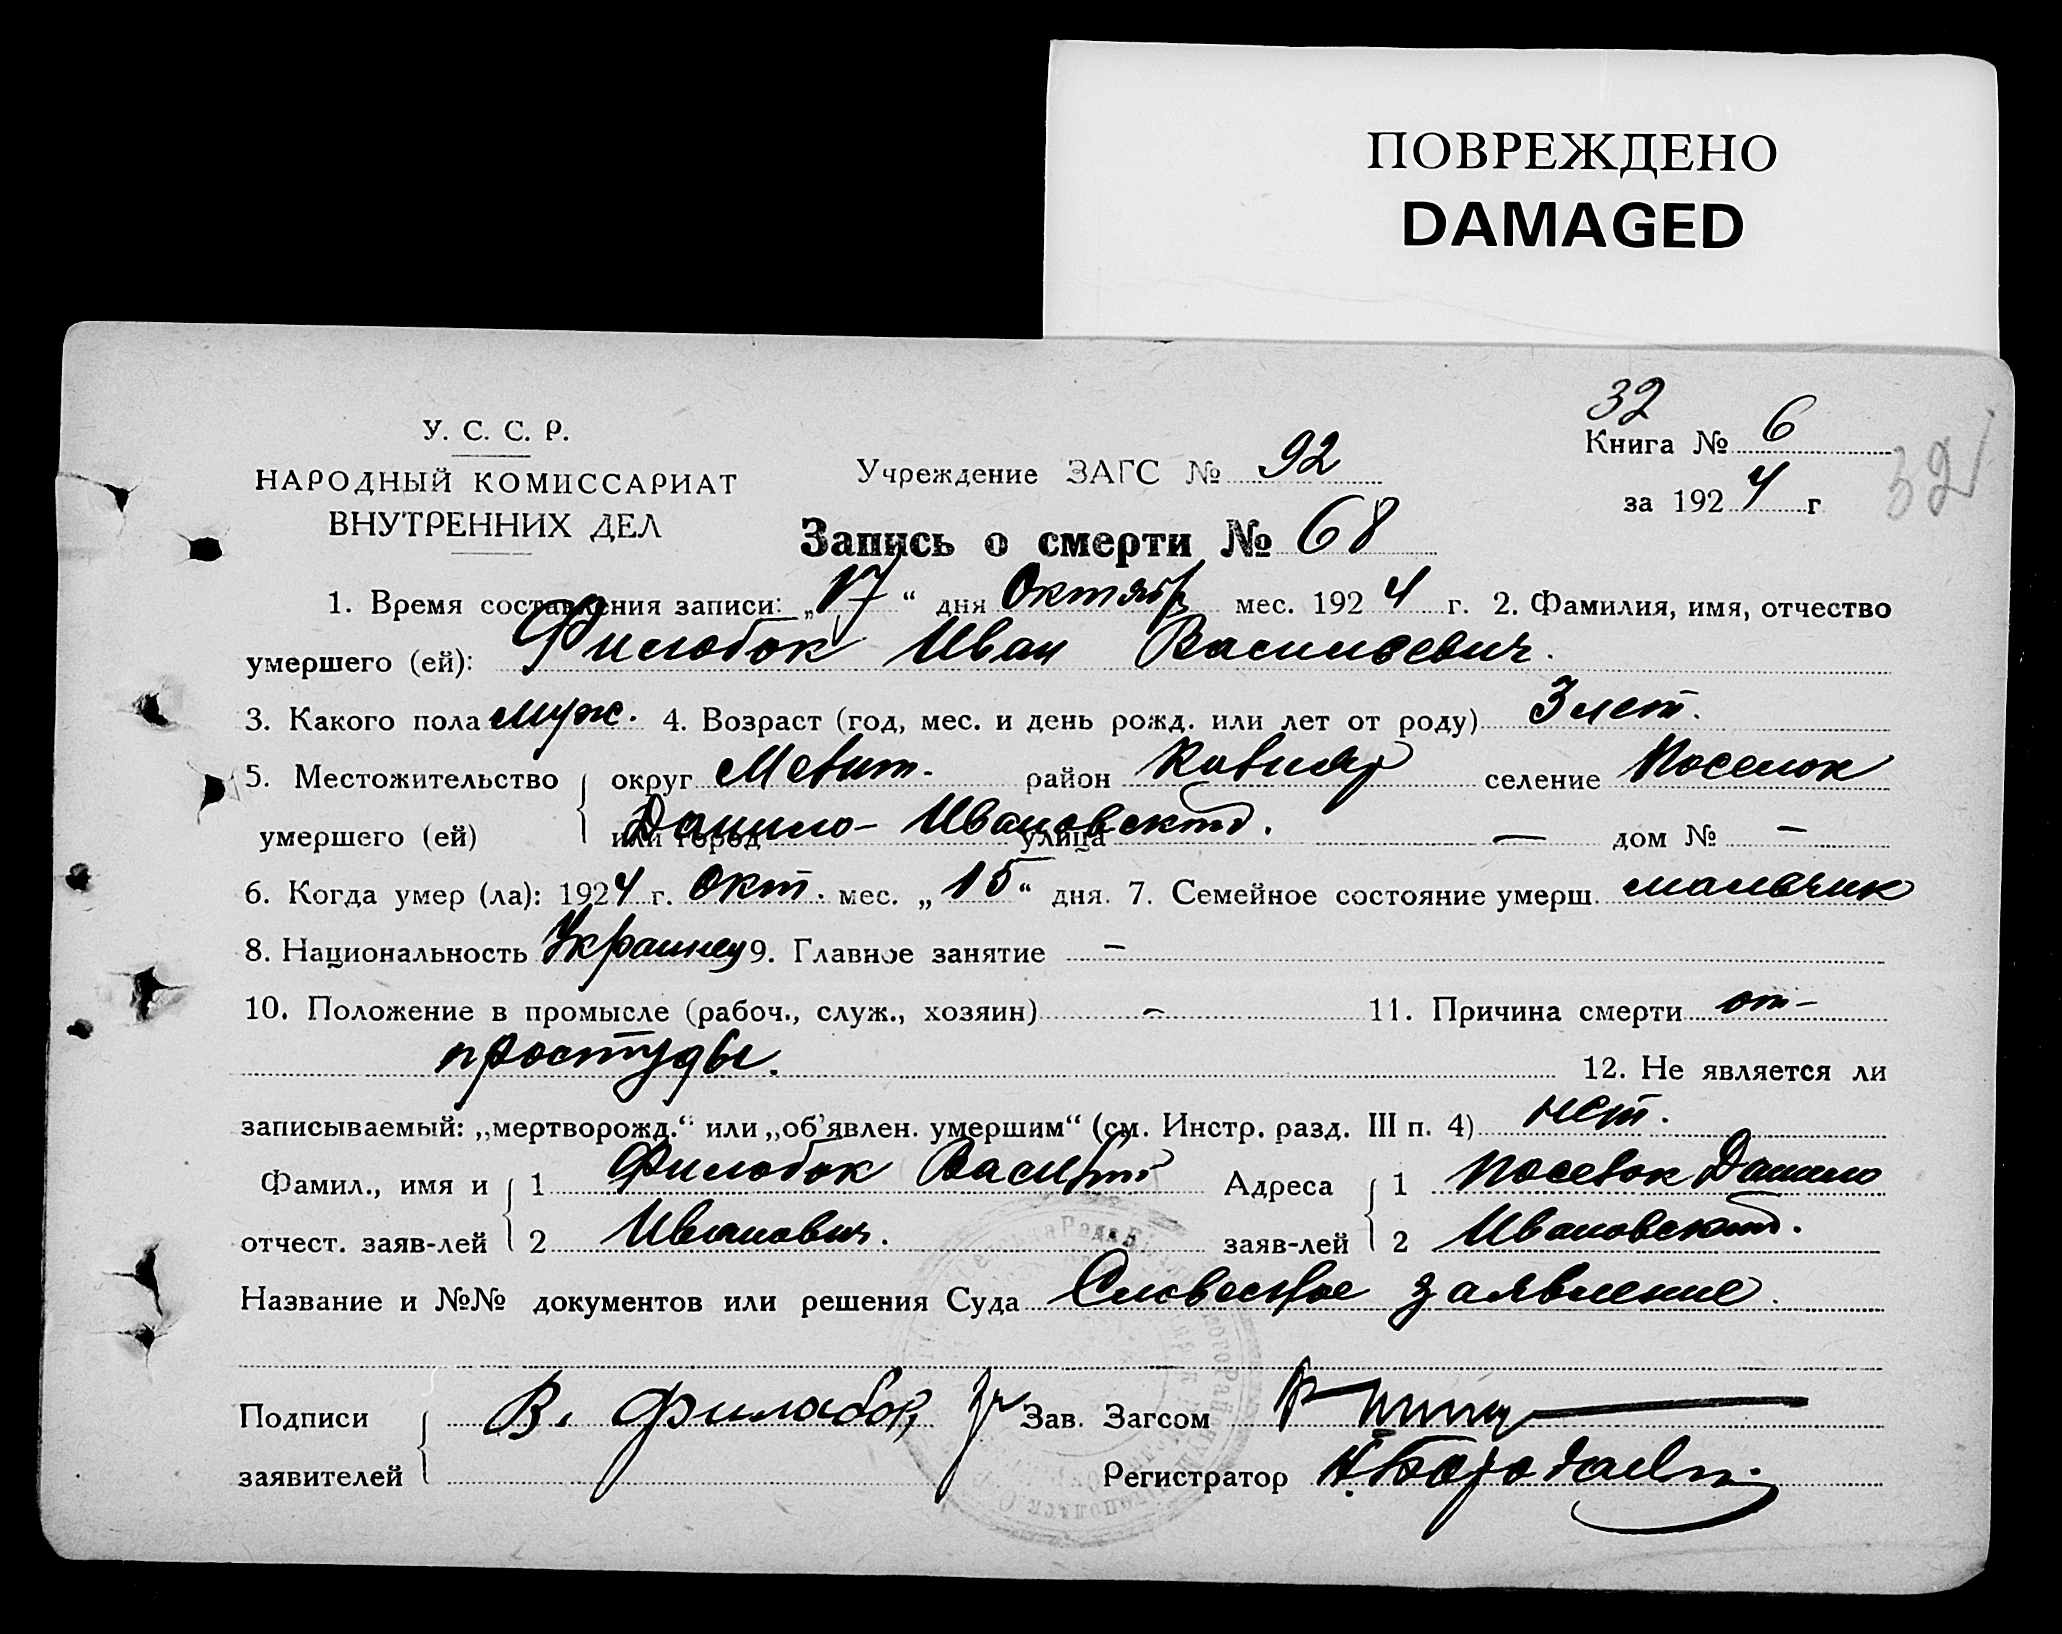 ПОВРЕЖДЕНО
DAMAGED
32
У. С. С. Р.
Книга № 6
32
НАРОДНЫЙ КОМИССАРИАТ
Учреждение ЗАГС № 92
за 1924 г
ВНУТРЕННИХ ДЕЛ
Запись о смерти № 68
1. Время составления записи: „17“ дня Октябр мес. 1924 г. 2. Фамилия, имя, отчество
умершего (ей): Филобок Иван Васильевич.
3. Какого пола муж. 4. Возраст (год, мес. и день рожд. или лет от роду) 3 лет.
5. Местожительство округ Мелит. район селение Поселок
умершего (ей) или город Данило-Ивановский. улица — дом № –
6. Когда умер (ла): 1924 г. окт. мес. „15“ дня. 7. Семейное состояние умерш. мальчик
8. Национальность Украинец 9. Главное занятие –
10. Положение в промысле (рабоч., служ., хозяин) – 11. Причина смерти от-
простуды. 12. Не является ли
записываемый: „мертворожд.“ или „об’явлен. умершим“ (см. Инстр. разд. III п. 4) нет.
Фамил., имя и 1 Филобок Василий Адреса 1 Поселок Данило
отчест. заяв-лей 2 Иванович. заяв-лей 2 Ивановский.
Название и №№ документов или решения Суда Словесное заявление.
Подписи В. Филобок Зав. Загсом
заявителей Регистратор